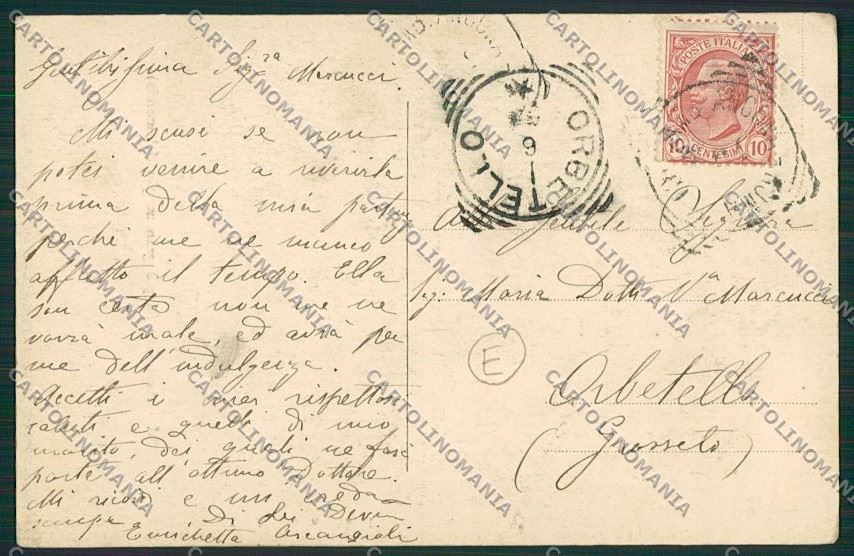 Gentilissima Sig.ra Marcucci.
Mi scusi se non
potei venire a riverirla
prima della mia
perché me ne mancò
affatto il tempo. Ella
son certa non me ne
vorrà male, ed avrà per
me dell'indulgenza.
Accetti i miei rispettosi
saluti e quelli di mio
marito, dei quali ne farà
parte all'ottimo Dottore.
Mi ricordi e mi creda
sempre Di Lei Dev.ma
Enrichetta Arcangioli
POSTE ITALIANE
CENTESIMI 10
ORBETELLO
Alla Gentile Signora
Sig. Maria Dott. Va Marcucci
Orbetello
(Grosseto)
E
CARTOLINOMANIA